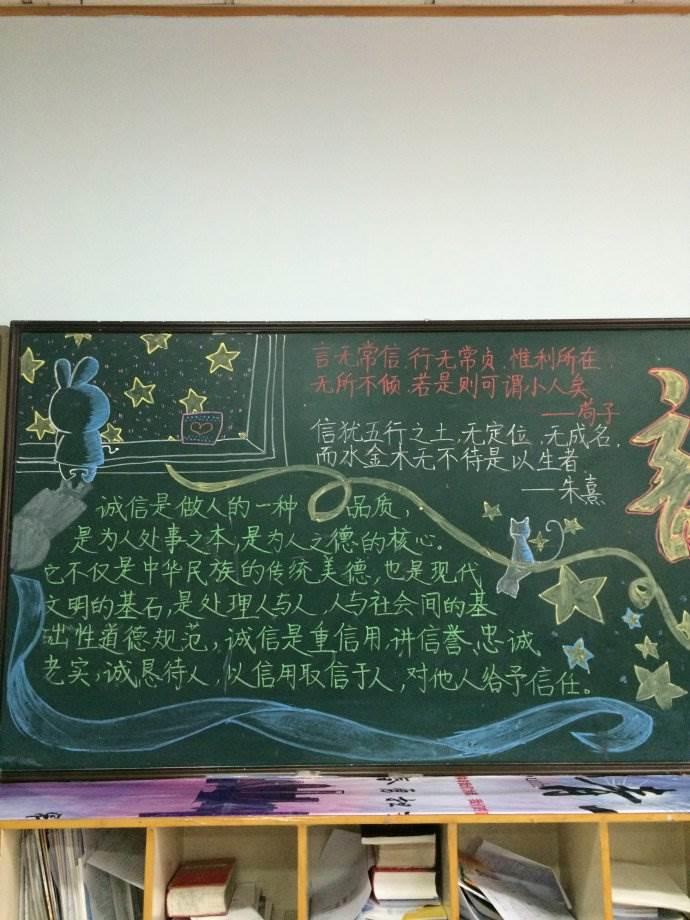 言无常信,行无常贞,惟利所在,
无所不倾,若是则可谓小人矣
——荀子
信犹五行之土,无定位,无成名,
而水金木无不待是以生者
——朱熹
诚信是做人的一种 品质,
是为人处事之本,是为人之德的核心。
它不仅是中华民族的传统美德,也是现代
文明的基石,是处理人与人,人与社会间的基
出性道德规范,诚信是重信用,讲信誉、忠诚
老实,诚恳待人,以信用取信于人,对他人给予信任。